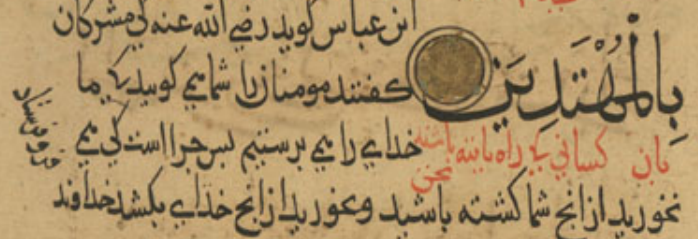 ابن عباس گوید رضي الله عنه کی مشرکان
بِالْمُهْتَدِينَ گفتند مومنانرا شما می گویید کی ما
بان کسانی کی راه یافته باشند خدای را می پرستیم بس جرا است کی می
نخورید از انج شما کشته باشید و بخورید از انج خدای بکشد خداوند